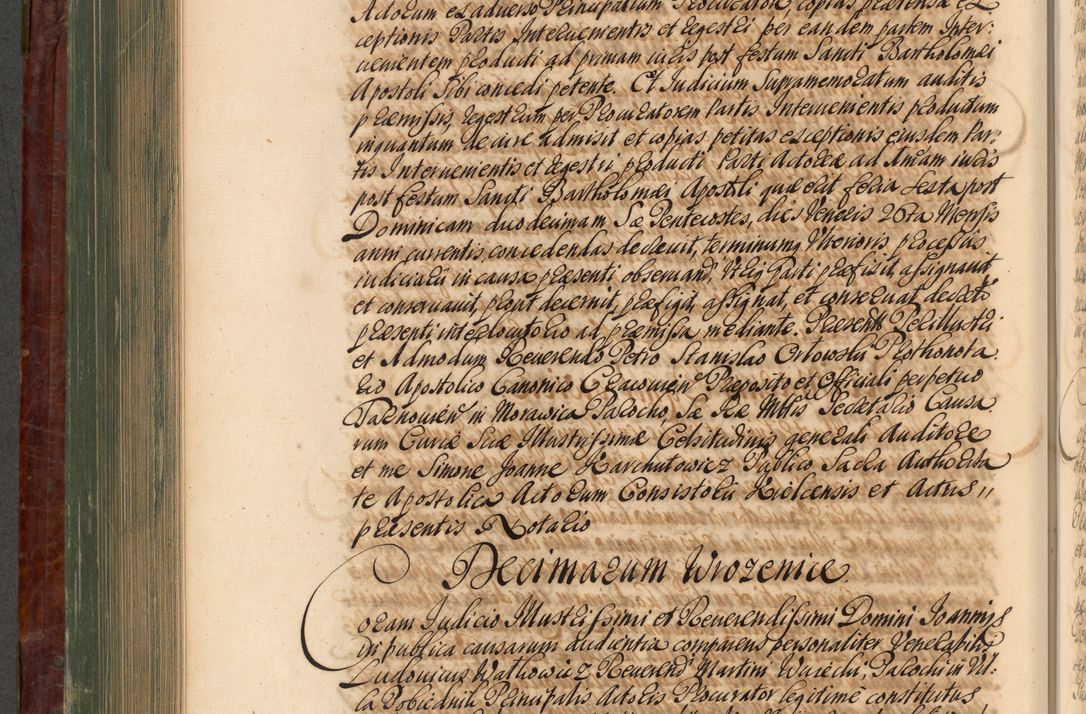 Actorum ex adverso Principalium Procuratore copias praetensae ex
ceptionis Partis Intervenientis et regestri per eandem partem Inter:
venientem producti ad primam iuris post festum Sancti Bartholomaei
Apostoli sibi concedi petente. Et Judicium Supramemoratum auditis
praemissis, regestrum per Procuratorem Partis Intervenientis productum
inquantum de iure admisit et copias petitas exceptionis eiusdem Par:
tis Intervenientis et regestri producti Parti Actoreae ad 1mam iuris
post festum Sancti Bartholomaei Apostoli quae erit feria sexta post
Dominicam duodecimam Sae Pentecostes, dies Veneris 26ta Mensis
anni currentis concedendas decrevit, terminumq Ulterioris processus
iudiciarii in causa praesenti observand, Utriq Parti praefixit, assignavit
et conservavit, prout decernit, praefigit, assignat, et conservat decreto
praesenti interlocutorio ad praemissa mediante. Praesente Perillustri
et Admodum Reverendo Petro Stanislao Orlowski Prothonota
rio Apostolico Canonico Cracovien Praeposito et Officiali perpetuo
Tarnovien in Morawica Parocho, Sae Rae Mttis Secretario Causa
rum Curiae Suae Illustrissimae Celsitudinis generali Auditore
et me Simone Joanne Karchutowicz Publico Sacra Authorita
te Apostolica Actorum Consistorii Kielcensis et Actus
praesentis Notario
Decimarum Wrozenice.
Coram Judicio Illustrissimi et Reverendissimi Domini Joannis
in publica causarum audientia comparens personaliter Venerabilis
Ludovicus Wathowicz Reverend Martini Parochi in Vil:
la Pobiednik Principalis Actoris Procurator legitime constitutus